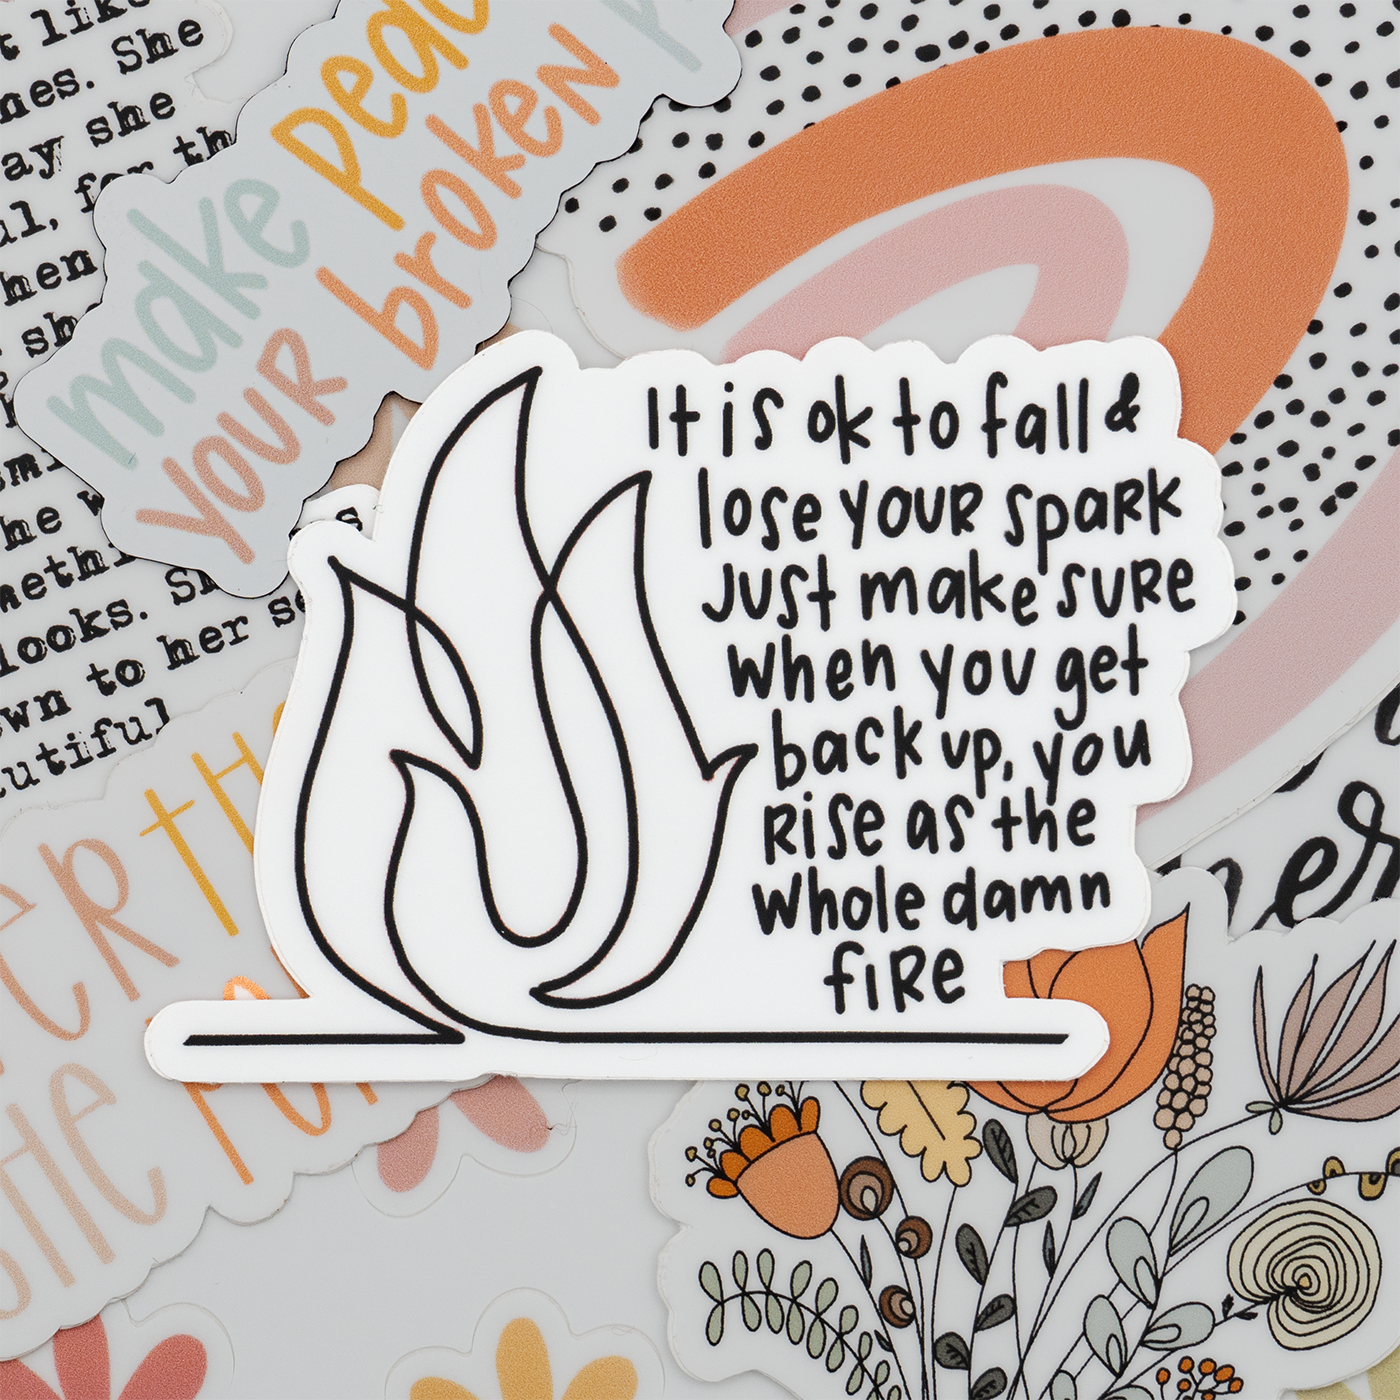 t like
nes. She
ay she
ul, for th
hen
sh
smi
he w
s
methi
looks. Sh
wn to her se
utiful
make peac
your broken
It is ok to fall &
lose your spark
just make sure
when you get
back up, you
rise as the
whole damn
fire
er the
she
her